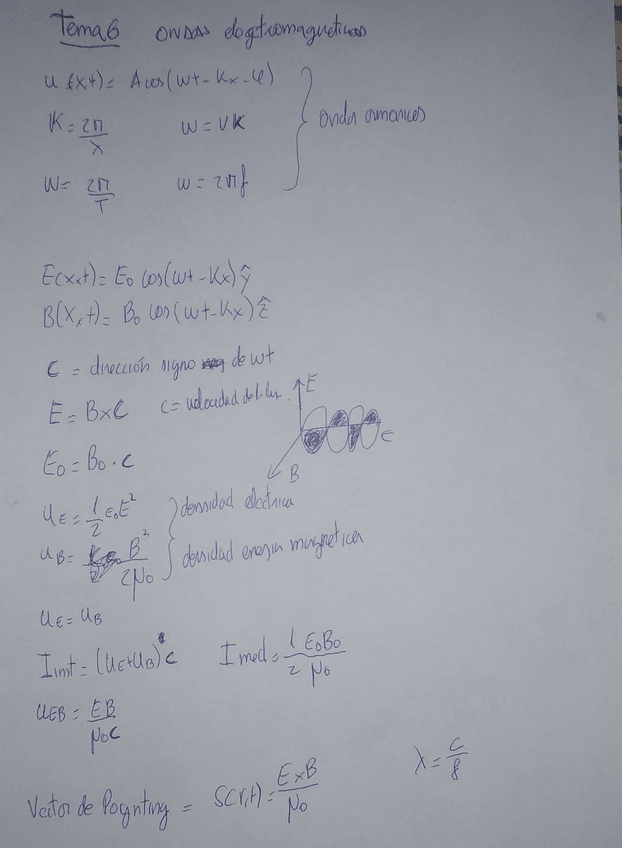 Tema 6 ondas electromagneticas
u(x,t) = A cos(wt - Kx - φ)
K = 2π/λ w = vK onda armonicas
w = 2π/T w = 2πf
E(x,t) = E₀ cos(wt - Kx) ŷ
B(x,t) = B₀ cos(wt - Kx) ẑ
c = dirección signo de wt
E = B x C c = velocidad de la luz
E
c
B
E₀ = B₀ · c
u_E = 1/2 ε₀E² densidad electrica
u_B = B²/2μ₀ densidad energia magnetica
u_E = u_B
I inst = (u_E + u_B) c I med = 1/2 E₀B₀/μ₀
u_EB = EB/μ₀c
λ = c/f
Vector de Poynting = S(r,t) = E x B/μ₀